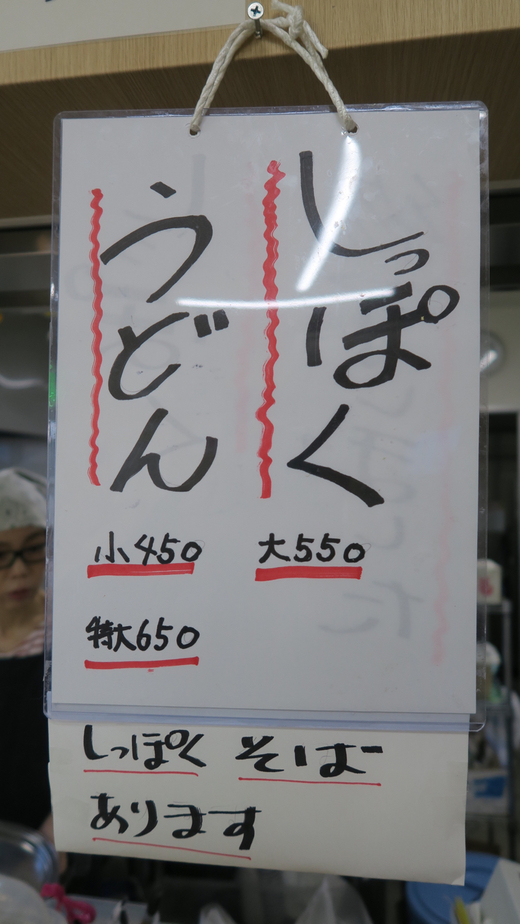 しっぽく
うどん
小450 大550
特大650
しっぽく そばー
あります